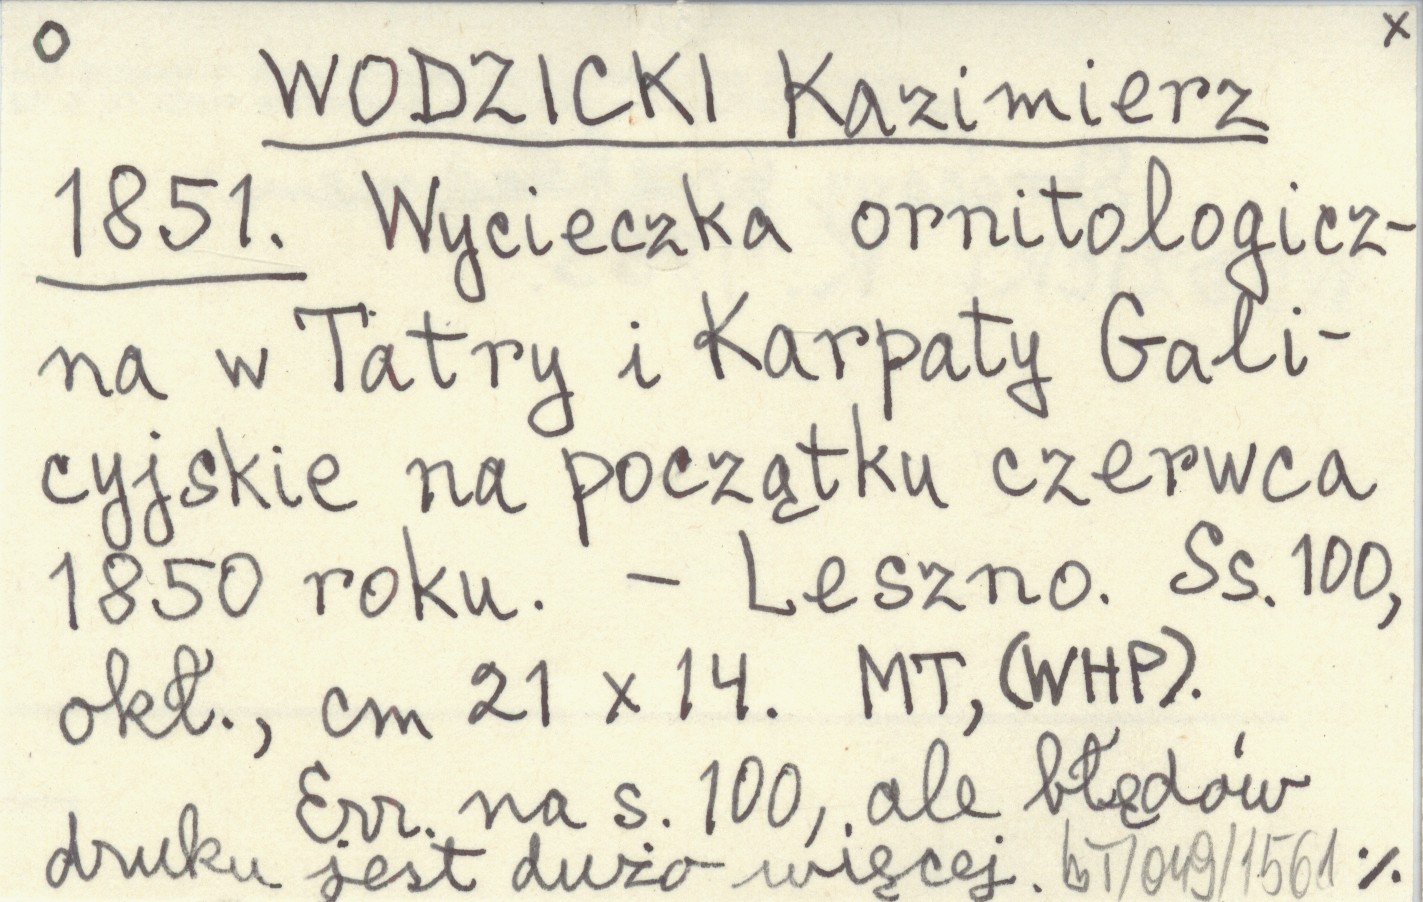 o x
WODZICKI Kazimierz
1851. Wycieczka ornitologicz-
na w Tatry i Karpaty Gali-
cyjskie na początku czerwca
1850 roku. – Leszno. Ss. 100,
okł., cm 21 x 14. MT, (WHP).
Err. na s. 100, ale błędów
druku jest dużo więcej. bT/049/1561 ./.